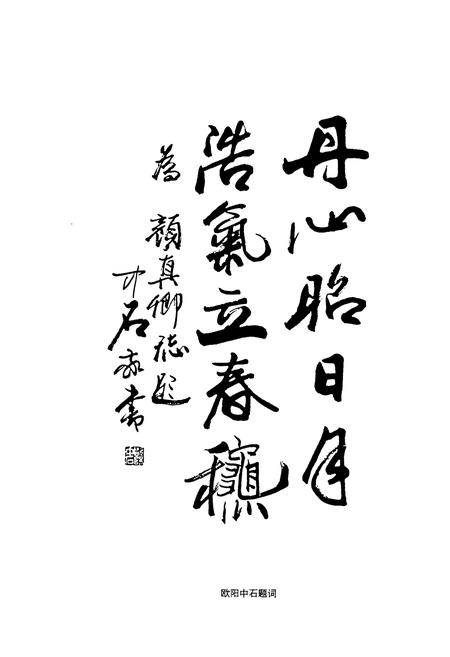 丹心昭日月
浩氣立春龝
為 顏真卿誌題
中石敬書
欧阳中石题词